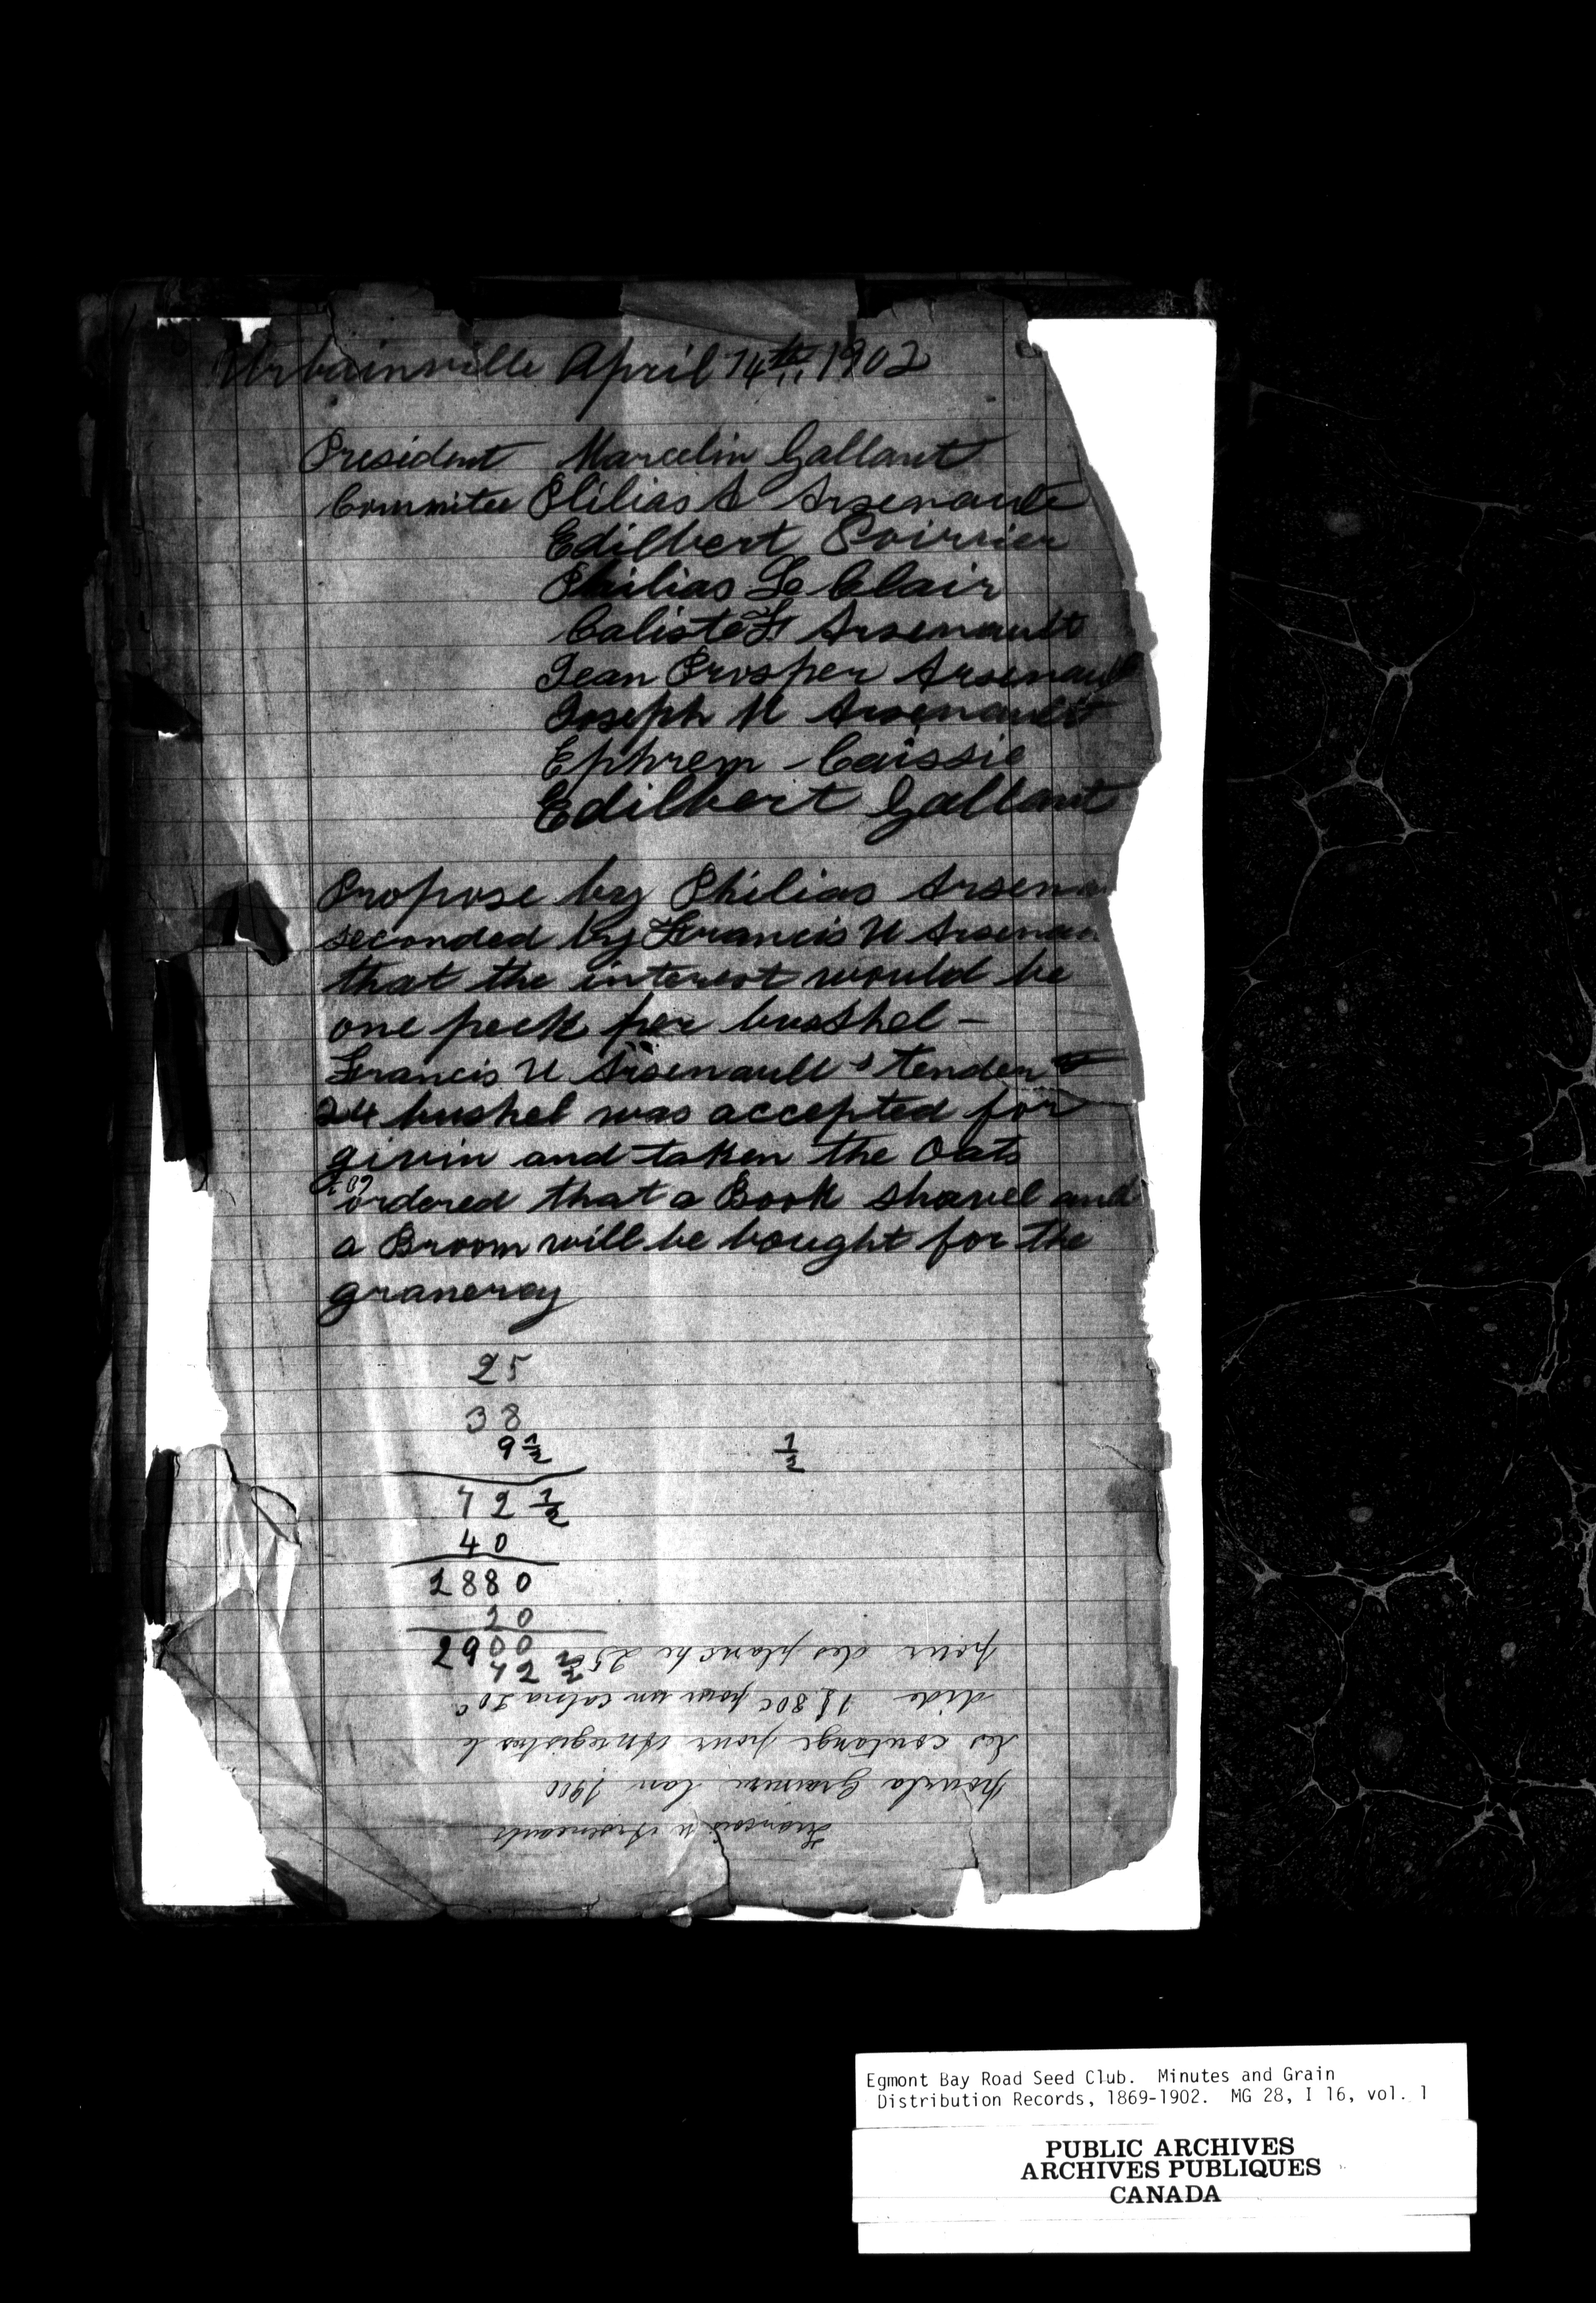 Urbainville April 14th 1902
President Marcelin Gallant
Commitee Philias A Arsenault
Edilbert Poirrier
Philias Le Clair
Caliste F Arsenault
Jean Prosper Arsenault
Joseph U Arsenault
Ephrem Caissie
Edilbert Gallant
Propose by Philias Arsena
seconded by Francis U Arsenau
that the interest would be
one peck per bushel -
Francis U Arsenault's tender
24 bushel was accepted for
givin and taken the Oats
ordered that a Book shavel and
a Broom will be bought for the
granerey
25
38
9 1/2 1/2
72 1/2
40
2880
20
2900
72 1/2
Francois U Arseneault
pour la Grainerie lan 1900
les coutange pour
1$ 80c pour un 20c
pour des planche 25c
Egmont Bay Road Seed Club. Minutes and Grain
Distribution Records, 1869-1902. MG 28, I 16, vol. 1
PUBLIC ARCHIVES
ARCHIVES PUBLIQUES
CANADA